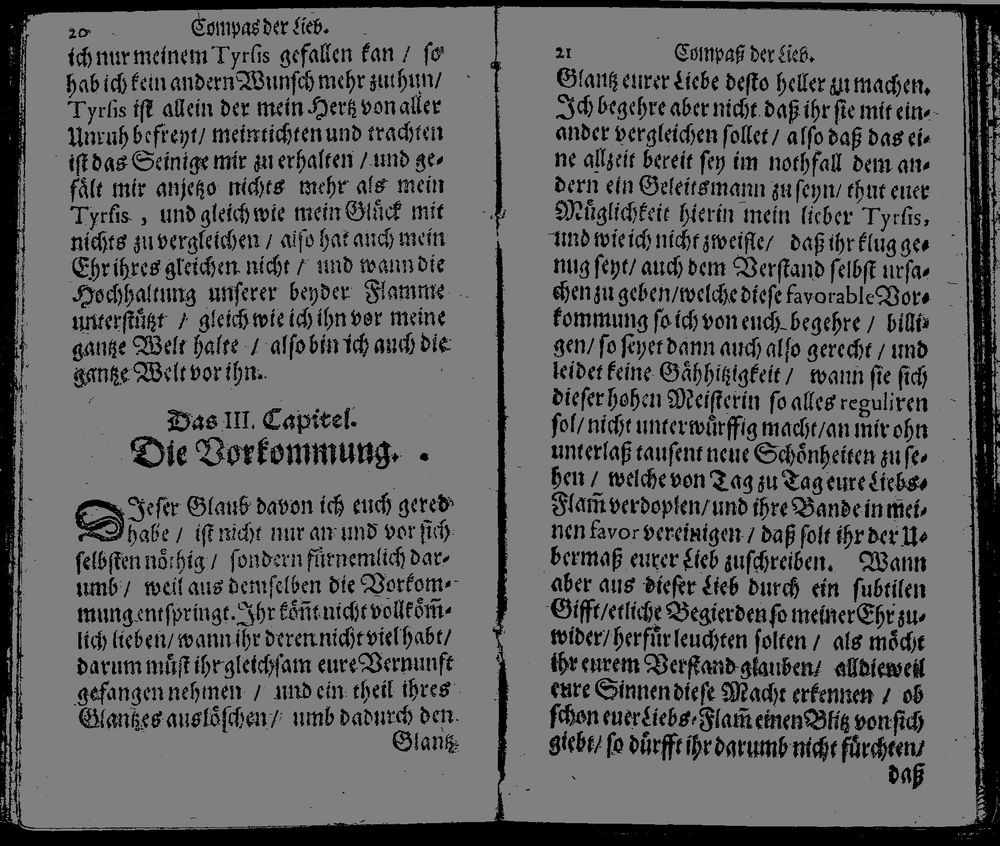 20 Compas der Lieb.
ich nur meinem Tyrsis gefallen kan / so
hab ich kein andern Wunsch mehr zuthun /
Tyrsis ist allein der mein Hertz von aller
Unruh befreyt / mein tichten und trachten
ist das Seinige mir zu erhalten / und ge-
fält mir anjetzo nichts mehr als mein
Tyrsis , und gleich wie mein Glück mit
nichts zu vergleichen / also hat auch mein
Ehr ihres gleichen nicht / und wann die
Hochhaltung unserer beyder Flamme
unterstützt / gleich wie ich ihn vor meine
gantze Welt halte / also bin ich auch die
gantze Welt vor ihn.
Das III. Capitel.
Die Vorkommung.
DJeser Glaub davon ich euch gered
habe / ist nicht nur an und vor sich
selbsten nöthig / sondern fürnemlich dar-
umb / weil aus demselben die Vorkom-
mung entspringt. Ihr köñt nicht vollköm̃-
lich lieben / wann ihr deren nicht viel habt /
darum müst ihr gleichsam eure Vernunft
gefangen nehmen / und ein theil ihres
Glantzes auslöschen / umb dadurch den
Glantz
21 Compaß der Lieb.
Glantz eurer Liebe desto heller zu machen.
Ich begehre aber nicht daß ihr sie mit ein-
ander vergleichen sollet / also daß das ei-
ne allzeit bereit sey im nothfall dem an-
dern ein Geleitsmann zu seyn / thut euer
Müglichkeit hierin mein lieber Tyrsis,
und wie ich nicht zweifle / daß ihr klug ge-
nug seyt / auch dem Verstand selbst ursa-
chen zu geben / welche diese favorable Vor-
kommung so ich von euch begehre / billi-
gen / so seyet dann auch also gerecht / und
leidet keine Gähhitzigkeit / wann sie sich
dieser hohen Meisterin so alles reguliren
sol / nicht unterwürffig macht / an mir ohn
unterlaß tausent neue Schönheiten zu se-
hen / welche von Tag zu Tag eure Liebs-
Flam̃ verdoplen / und ihre Bande in mei-
nen favor vereinigen / daß solt ihr der U-
bermaß eurer Lieb zuschreiben. Wann
aber aus dieser Lieb durch ein subtilen
Gifft / etliche Begierden so meiner Ehr zu-
wider / herfür leuchten solten / als möcht
ihr eurem Verstand glauben / alldieweil
eure Sinnen diese Macht erkennen / ob
schon euer Liebs-Flam̃ einen Blitz von sich
giebt / so dürfft ihr darumb nicht fürchten /
daß